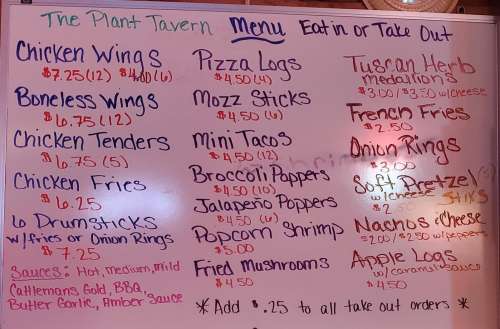 The Plant Tavern Menu Eat in or Take Out
Chicken Wings
$7.25 (12) $4.00 (6)
Boneless Wings
$6.75 (12)
Chicken Tenders
$6.75 (5)
Chicken Fries
$6.25
6 Drumsticks
w/fries or Onion Rings
$7.25
Sauces: Hot, Medium, Mild
Cattlemans Gold, BBQ,
Butter Garlic, Amber Sauce
Pizza Logs
$4.50 (4)
Mozz Sticks
$4.50 (6)
Mini Tacos
$4.50 (12)
Broccoli Poppers
$4.50 (10)
Jalapeño Poppers
$4.50 (6)
Popcorn Shrimp
$5.00
Fried Mushrooms
$4.50
Tuscan Herb
Medallions
$3.00/$3.50 w/cheese
French Fries
$2.50
Onion Rings
$3.00
Soft Pretzel
w/cheese Stix
$2
Nachos & Cheese
$2.00/$2.50 w/peppers
Apple Logs
w/caramel sauce
$4.50
* Add $.25 to all take out orders *